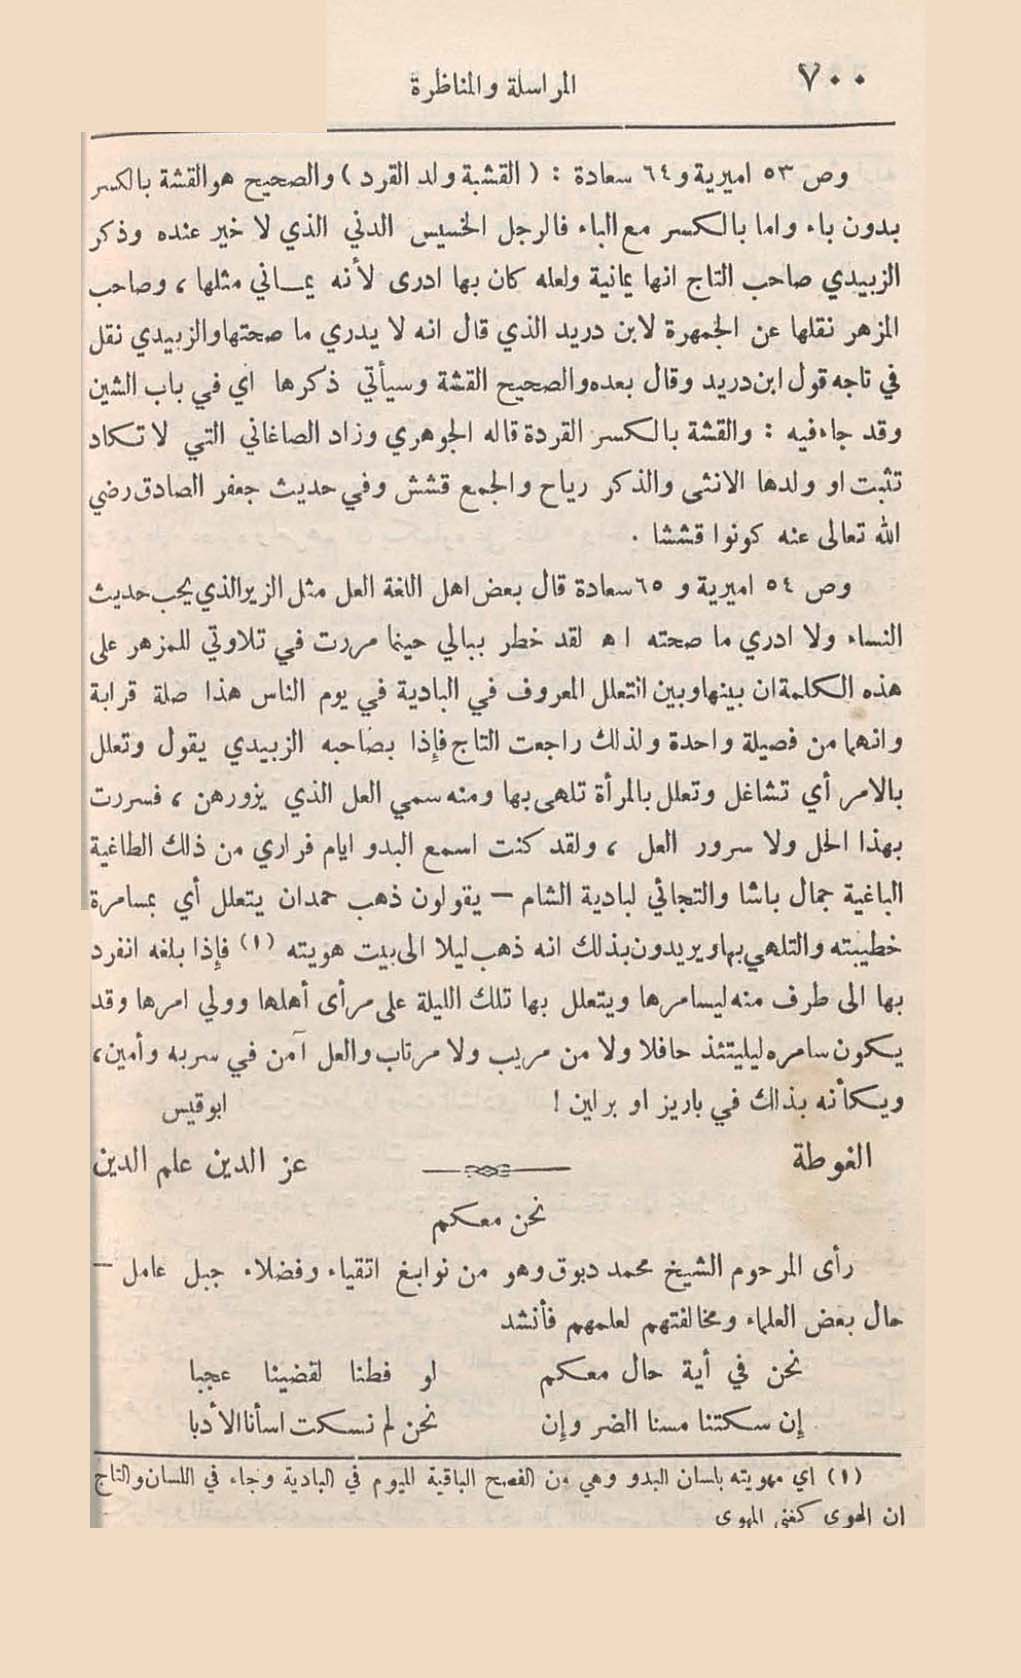 ٧٠٠
المراسلة والمناظرة
وص ٥٣ اميرية و ٦٤ سعادة : ( القشبة ولد القرد ) والصحيح هو القشة بالكسر
بدون باء واما بالكسر مع الباء فالرجل الخسيس الدني الذي لا خير عنده وذكر
الزبيدي صاحب التاج انها يمانية ولعله كان بها ادرى لأنه يماني مثلها ، وصاحب
المزهر نقلها عن الجمهرة لابن دريد الذي قال انه لا يدري ما صحتها والزبيدي نقل
في تاجه قول ابن دريد وقال بعده والصحيح القشة وسيأتي ذكرها اي في باب الشين
وقد جاء فيه : والقشة بالكسر القردة قاله الجوهري وزاد الصاغاني التي لا تكاد
تثبت او ولدها الانثى والذكر رباح والجمع قشش وفي حديث جعفر الصادق رضي
الله تعالى عنه كونوا قششا .
وص ٥٤ اميرية و ٦٥ سعادة قال بعض اهل اللغة العل مثل الزير الذي يحب حديث
النساء ولا ادري ما صحته ا ه‍ لقد خطر ببالي حينما مررت في تلاوتي للمزهر على
هذه الكلمة ان بينها وبين التعلل المعروف في البادية في يوم الناس هذا صلة قرابة
وانهما من فصيلة واحدة ولذلك راجعت التاج فإذا بصاحبه الزبيدي يقول وتعلل
بالامر أي تشاغل وتعلل بالمرأة تلهى بها ومنه سمي العل الذي يزورهن ، فسررت
بهذا الحل ولا سرور العل ، ولقد كنت اسمع البدو ايام فراري من ذلك الطاغية
الباغية جمال باشا والتجائي لبادية الشام – يقولون ذهب حمدان يتعلل أي بمسامرة
خطيبته والتلهي بها ويريدون بذلك انه ذهب ليلا الى بيت هويته (١) فإذا بلغه انفرد
بها الى طرف منه ليسامرها ويتعلل بها تلك الليلة على مرأى أهلها وولي امرها وقد
يكون سامره ليليتئذ حافلا ولا من مريب ولا مرتاب والعل آمن في سربه وأمين ،
ويكأنه بذالك في باريز او برلين !
ابو قيس
الغوطة
عز الدين علم الدين
نحن معكم
رأى المرحوم الشيخ محمد دبوق وهو من نوابغ اتقياء وفضلاء جبل عامل –
حال بعض العلماء ومخالفتهم لعلمهم فأنشد
نحن في أية حال معكم لو فطنا لقضينا عجبا
إن سكتنا مسنا الضر وإن نحن لم نسكت اسأنا الأدبا
(١) اي مهويته بلسان البدو وهي من الفصح الباقية لليوم في البادية وجاء في اللسان والتاج
ان الهوي كغني المهوي